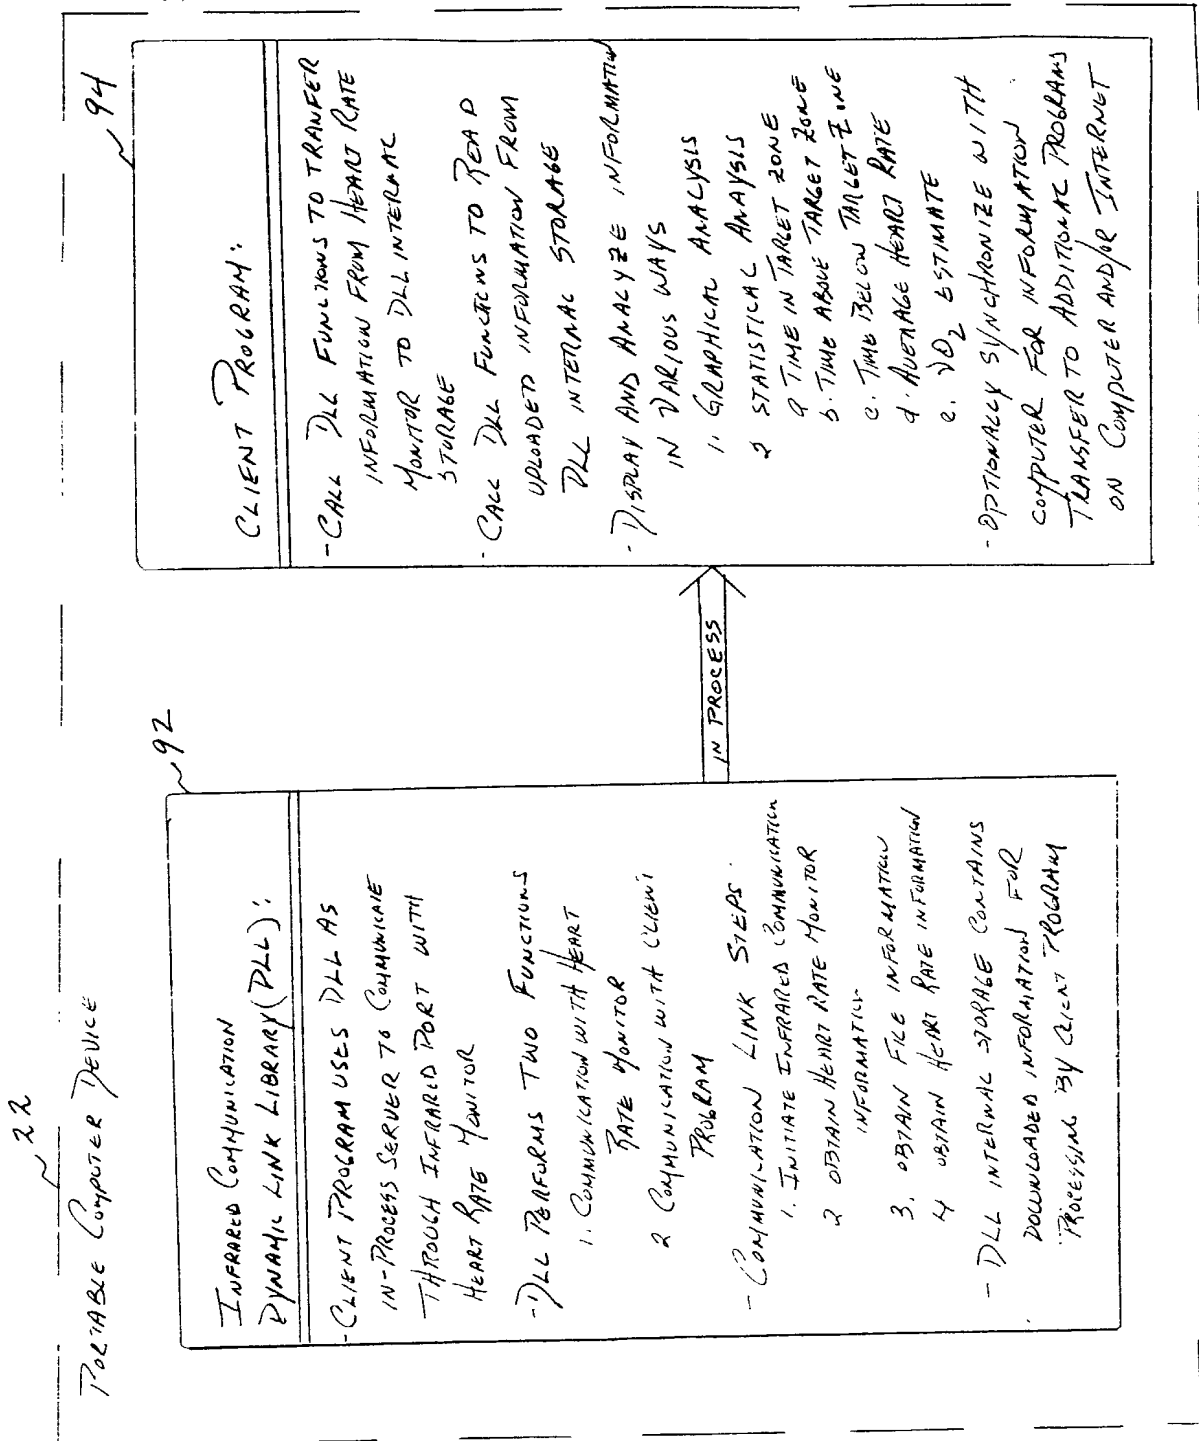 22
PORTABLE COMPUTER DEVICE
92
INFRARED COMMUNICATION
DYNAMIC LINK LIBRARY (DLL):
- CLIENT PROGRAM USES DLL AS
IN-PROCESS SERVER TO COMMUNICATE
THROUGH INFRARED PORT WITH
HEART RATE MONITOR
- DLL PERFORMS TWO FUNCTIONS
1. COMMUNICATION WITH HEART
RATE MONITOR
2 COMMUNICATION WITH CLIENT
PROGRAM
- COMMUNICATION LINK STEPS.
1. INITIATE INFRARED COMMUNICATION
2 OBTAIN HEART RATE MONITOR
INFORMATION
3. OBTAIN FILE INFORMATION
4 OBTAIN HEART RATE INFORMATION
- DLL INTERNAL STORAGE CONTAINS
DOWNLOADED INFORMATION FOR
PROCESSING BY CLIENT PROGRAM
IN PROCESS
94
CLIENT PROGRAM:
- CALL DLL FUNCTIONS TO TRANFER
INFORMATION FROM HEART RATE
MONITOR TO DLL INTERNAL
STORAGE
- CALL DLL FUNCTIONS TO READ
UPLOADED INFORMATION FROM
DLL INTERNAL STORAGE
- DISPLAY AND ANALYZE INFORMATION
IN VARIOUS WAYS
1. GRAPHICAL ANALYSIS
2 STATISTICAL ANAYSIS
a TIME IN TARGET ZONE
b. TIME ABOVE TARGET ZONE
c. TIME BELOW TARGET ZONE
d. AVERAGE HEART RATE
e. VO2 ESTIMATE
- OPTIONALLY SYNCHRONIZE WITH
COMPUTER FOR INFORMATION
TRANSFER TO ADDITIONAL PROGRAMS
ON COMPUTER AND/OR INTERNET